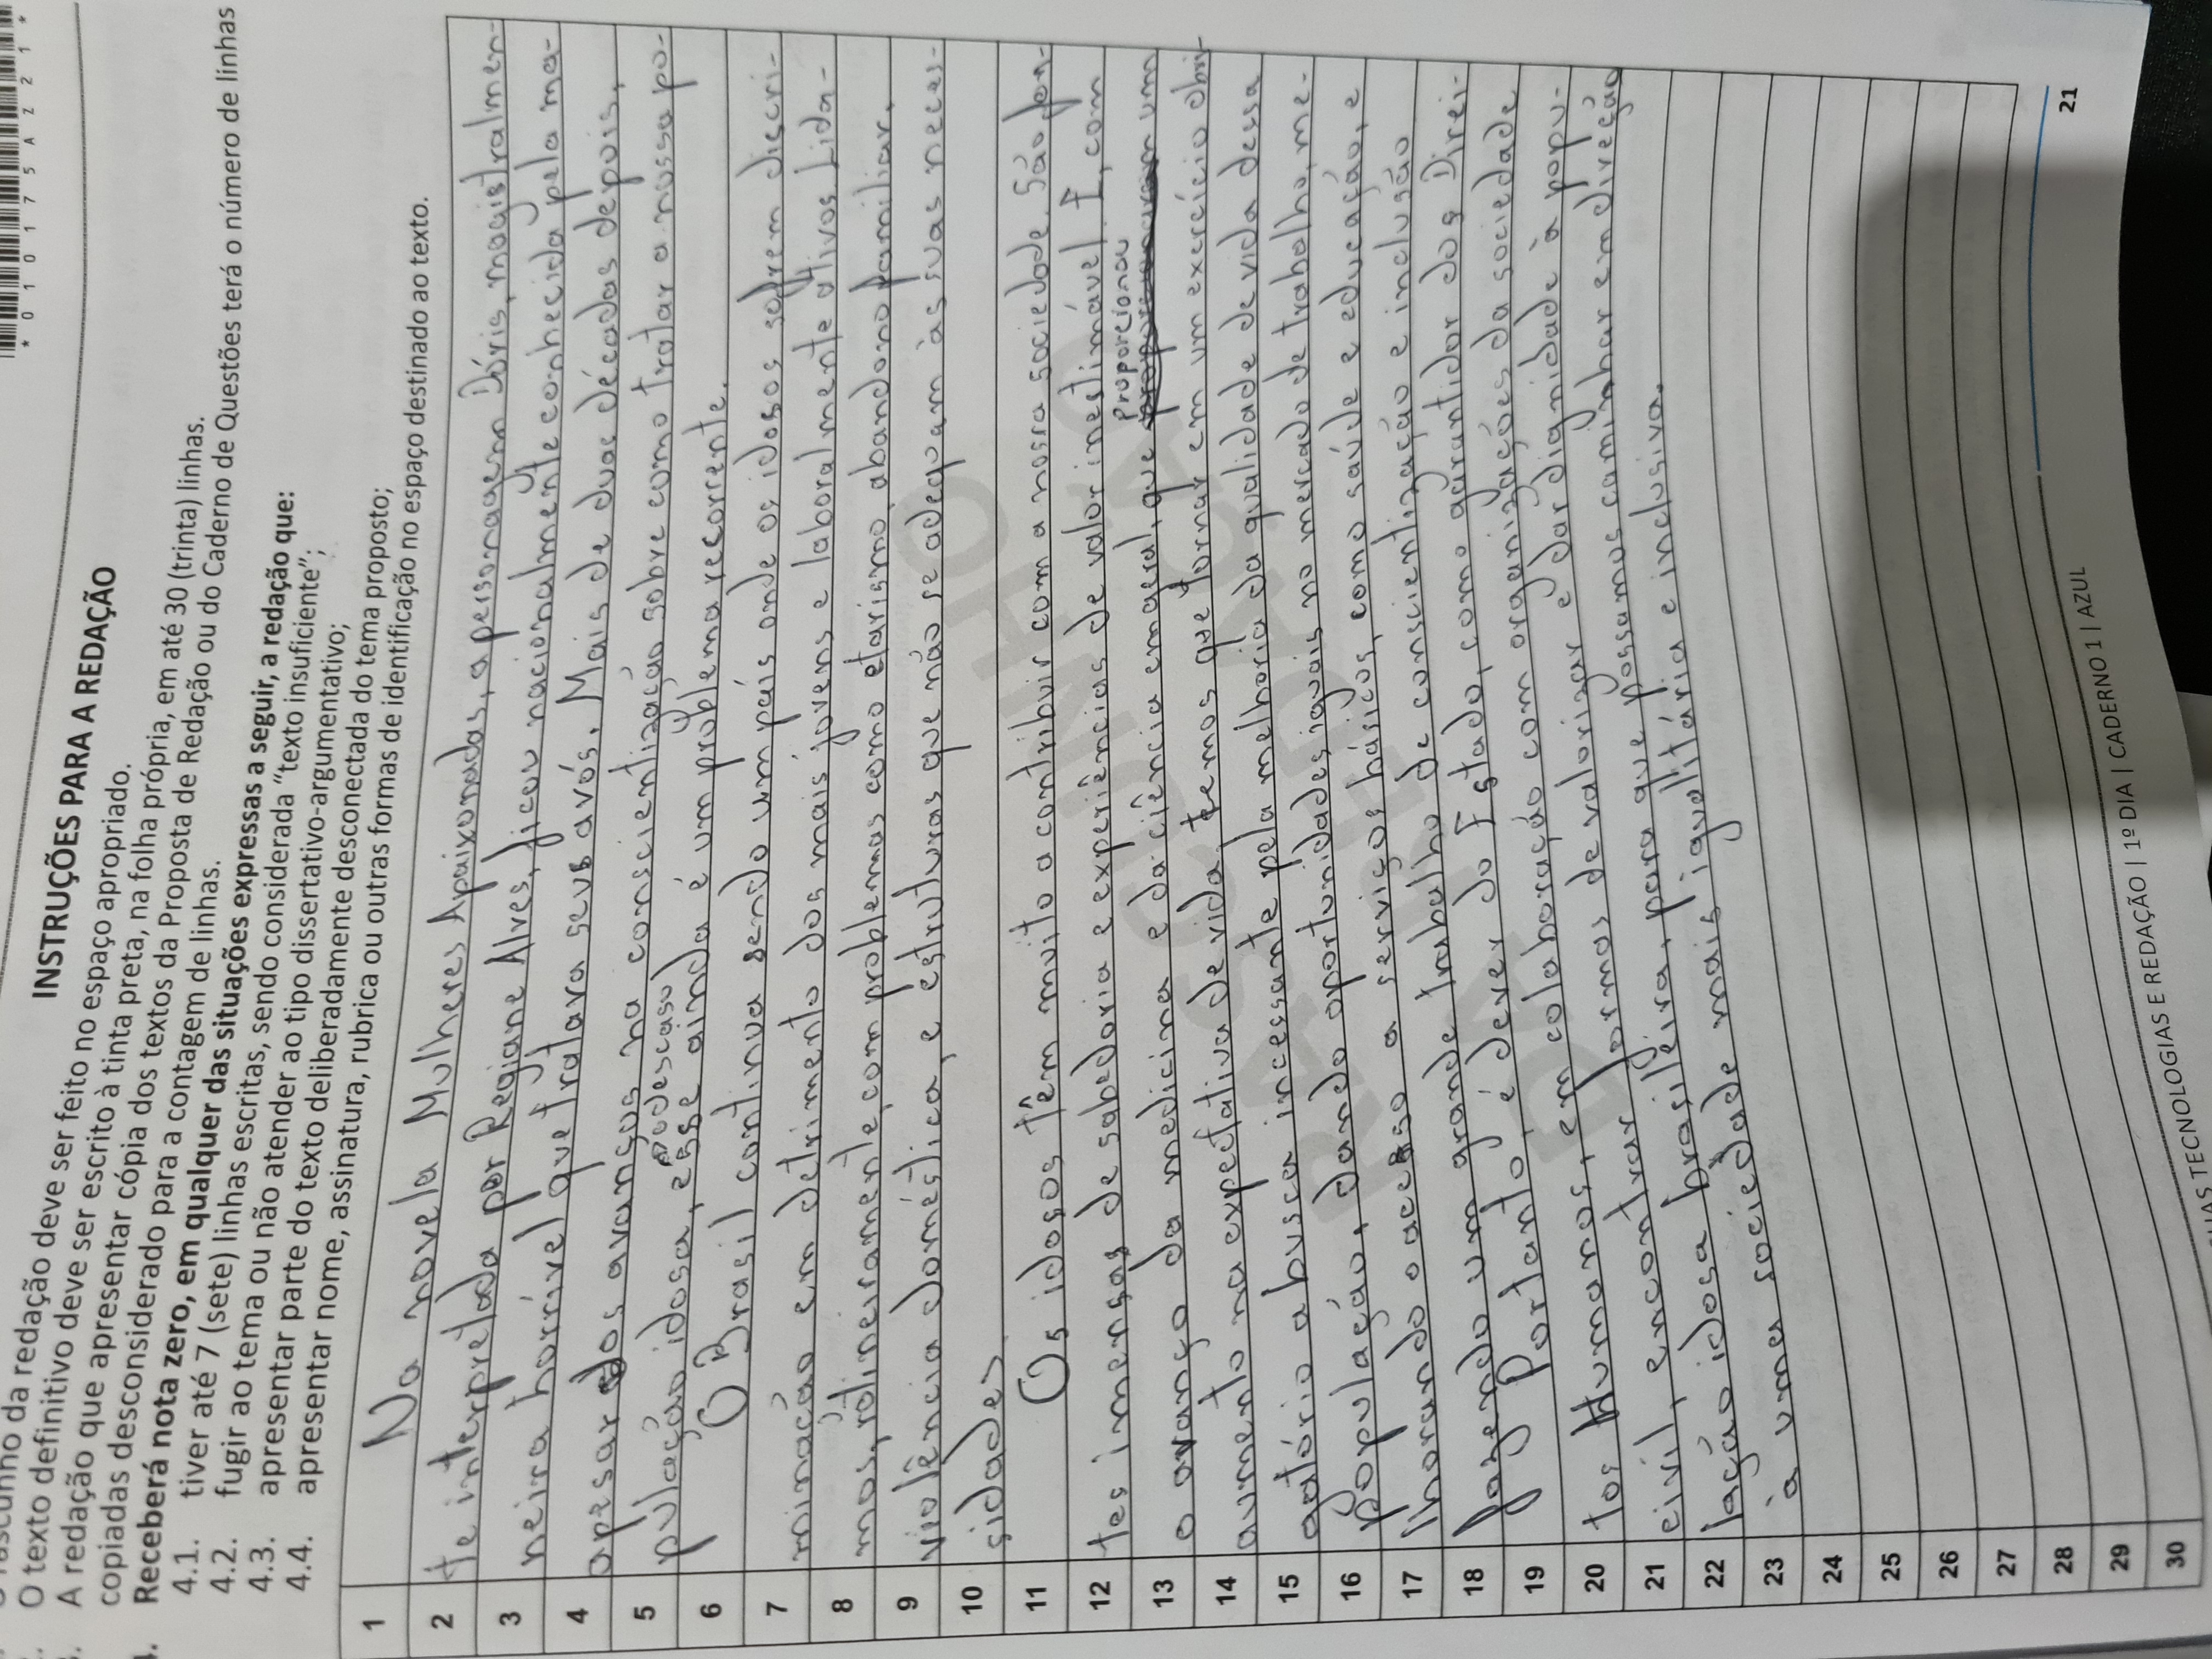 * 0 1 0 1 7 5 A Z 2 2 1 *
INSTRUÇÕES PARA A REDAÇÃO
rascunho da redação deve ser feito no espaço apropriado.
O texto definitivo deve ser escrito à tinta preta, na folha própria, em até 30 (trinta) linhas.
A redação que apresentar cópia dos textos da Proposta de Redação ou do Caderno de Questões terá o número de linhas
copiadas desconsiderado para a contagem de linhas.
Receberá nota zero, em qualquer das situações expressas a seguir, a redação que:
4.1. tiver até 7 (sete) linhas escritas, sendo considerada "texto insuficiente";
4.2. fugir ao tema ou não atender ao tipo dissertativo-argumentativo;
4.3. apresentar parte do texto deliberadamente desconectada do tema proposto;
4.4. apresentar nome, assinatura, rubrica ou outras formas de identificação no espaço destinado ao texto.
1 Na novela Mulheres Apaixonadas, a personagem Dóris, magistralmen-
2 te interpretada por Regiane Alves, ficou nacionalmente conhecida pela ma-
3 neira horrível que tratava seus avós. Mais de duas décadas depois,
4 apesar dos avanços na conscientização sobre como tratar a nossa po-
5 pulação idosa, esse descaso ainda é um problema recorrente.
6 O Brasil continua sendo um país onde os idosos sofrem discri-
7 minação em detrimento dos mais jovens e laboralmente ativos. Lida-
8 mos, rotineiramente, com problemas como etarismo, abandono familiar,
9 violência doméstica, e estruturas que não se adequam às suas neces-
10 sidades
11 Os idosos têm muito a contribuir com a nossa sociedade. São fon-
12 tes imensas de sabedoria e experiências de valor inestimável. E, com
13 o avanço da medicina e da ciência em geral, que proporcionou um
14 aumento na expectativa de vida, temos que tornar em um exercício obri-
15 gatório a busca incessante pela melhoria da qualidade de vida dessa
16 população, dando oportunidades iguais no mercado de trabalho, me-
17 lhorando o acesso a serviços básicos, como saúde e educação, e
18 fazendo um grande trabalho de conscientização e inclusão
19 Portanto, é dever do Estado, como garantidor dos Direi-
20 tos Humanos, em colaboração com organizações da sociedade
21 civil, encontrar formas de valorizar e dar dignidade à popu-
22 lação idosa brasileira, para que possamos caminhar em direção
23 à uma sociedade mais igualitária e inclusiva.
24
25
26
27
28
29
30
RASCUNHO
DA REDAÇÃO
SUAS TECNOLOGIAS E REDAÇÃO | 1º DIA | CADERNO 1 | AZUL
21